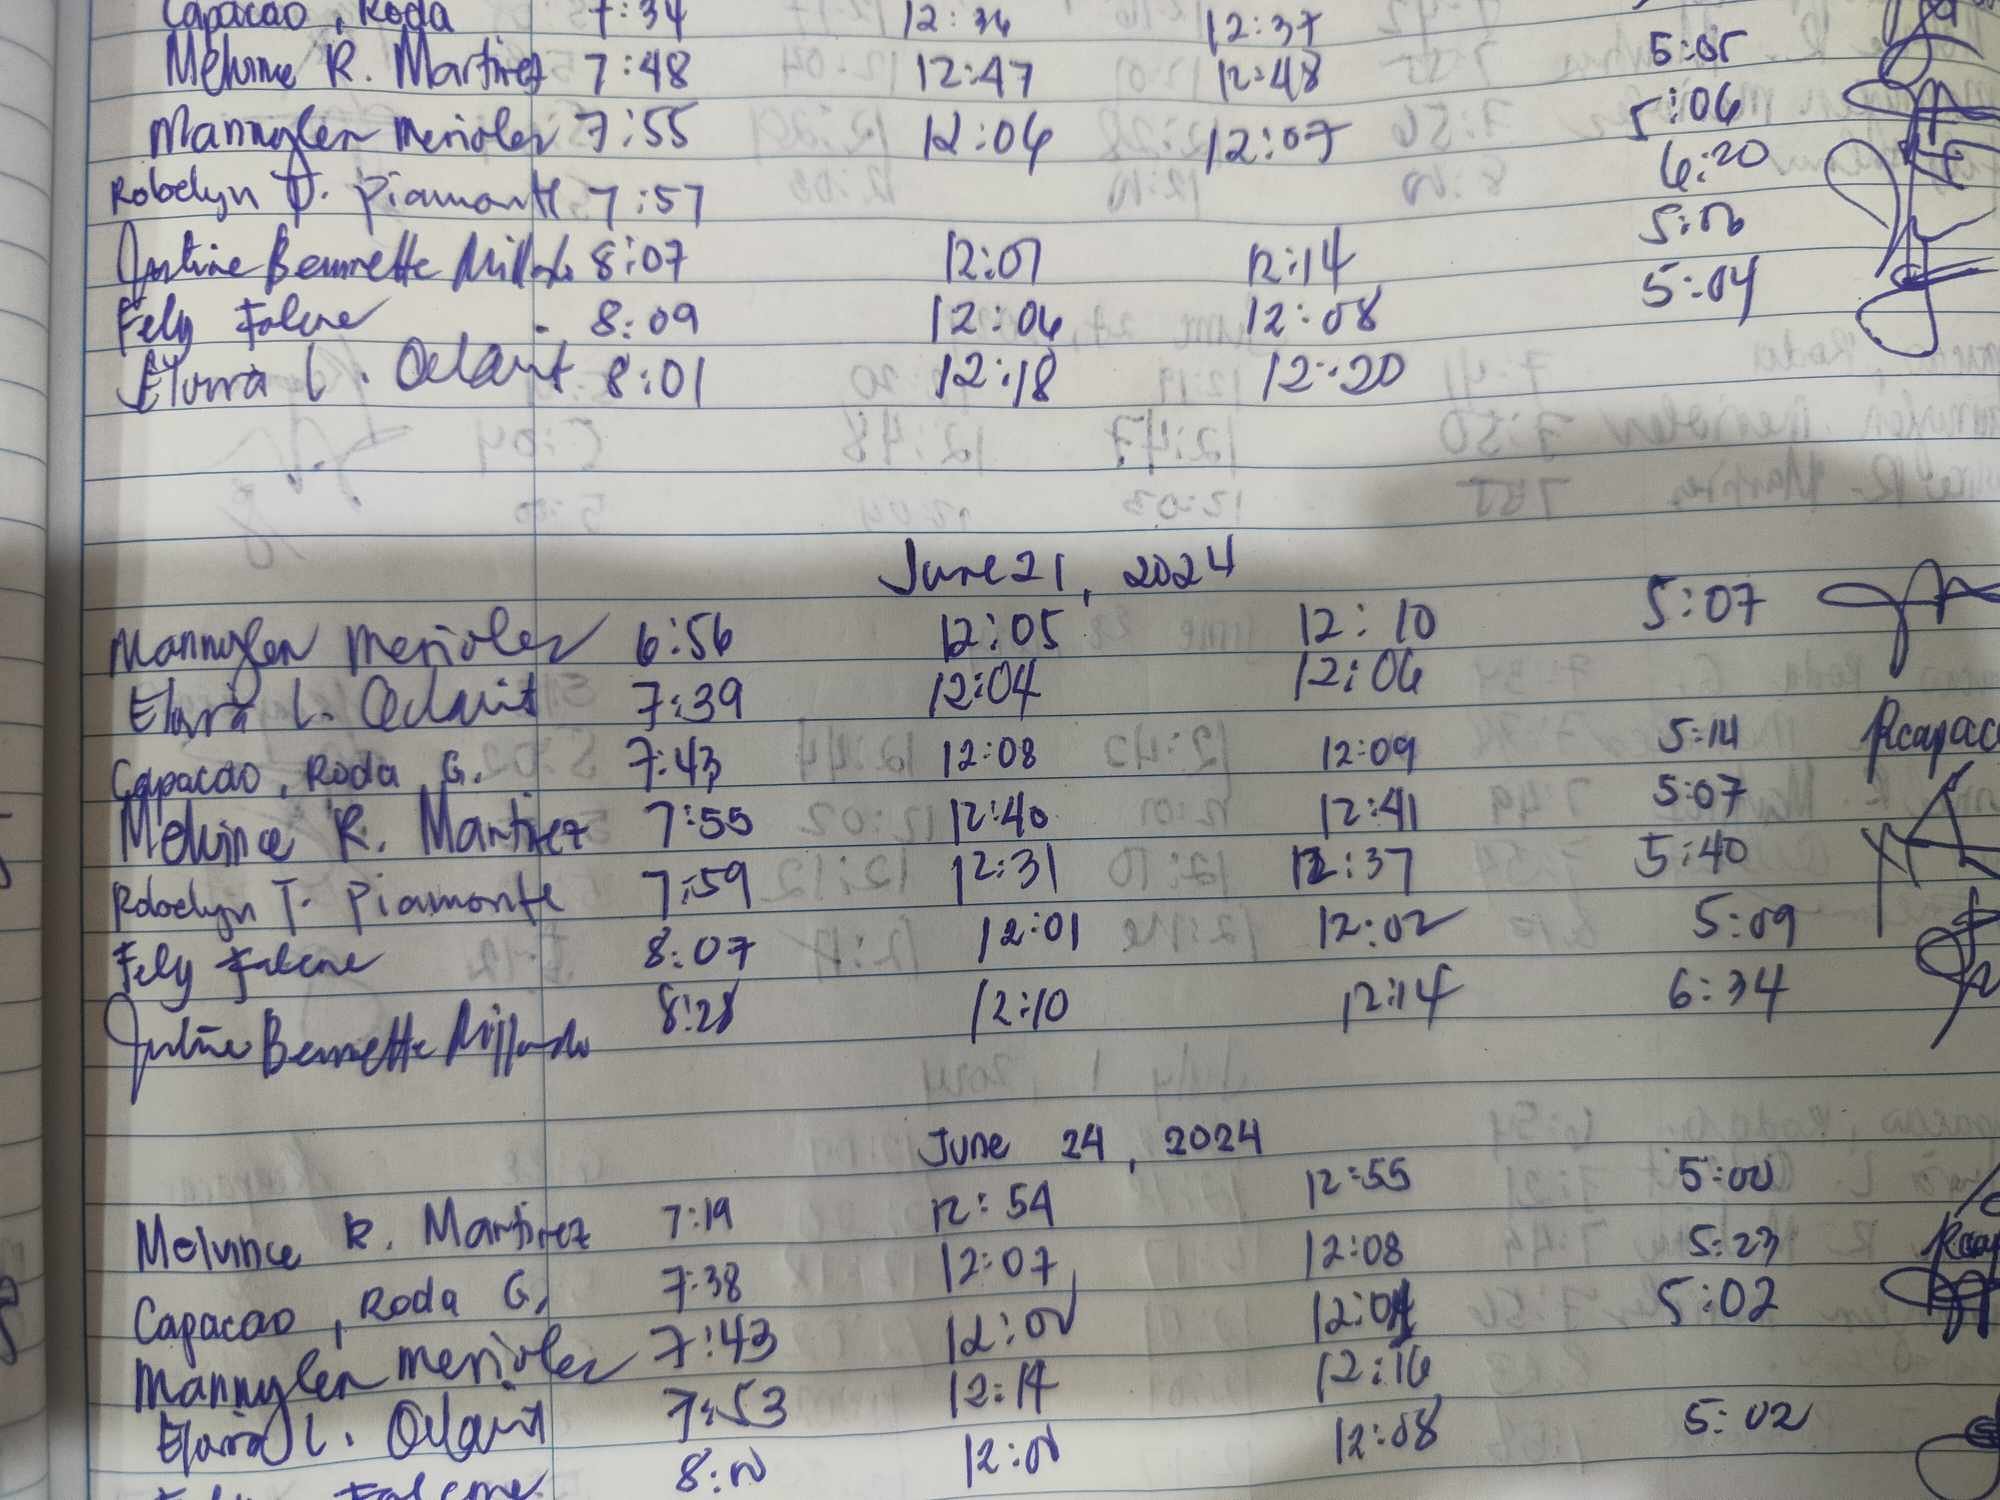 Capacao, Roda 7:34 12:36 12:37
Melvince R. Martinez 7:48 12:47 12:48 5:05
Mannylen Merioles 7:55 12:06 12:07 5:06
Robelyn T. Piamonte 7:57 6:20
Justine Bennette 8:07 12:01 12:14 5:00
Fely Falcne 8:09 12:06 12:08 5:04
Elvira L. Odauit 8:01 12:18 12:20
June 21, 2024
Mannylen Merioles 6:56 12:05 12:10 5:07
Elvira L. Odauit 7:39 12:04 12:06
Capacao, Roda G. 7:43 12:08 12:09 5:14 Rcapac
Melvince R. Martinez 7:55 12:40 12:41 5:07
Robelyn T. Piamonte 7:59 12:31 12:37 5:40
Fely Falcne 8:07 12:01 12:02 5:09
Justine Bennette 8:28 12:10 12:14 6:34
June 24, 2024
Melvince R. Martinez 7:19 12:54 12:55 5:00
Capacao, Roda G. 7:38 12:07 12:08 5:23 Rcap
Mannylen Merioles 7:43 12:00 5:02
Elvira L. Odauit 7:53 12:14 12:16
Falcone 8:00 12:00 12:08 5:02